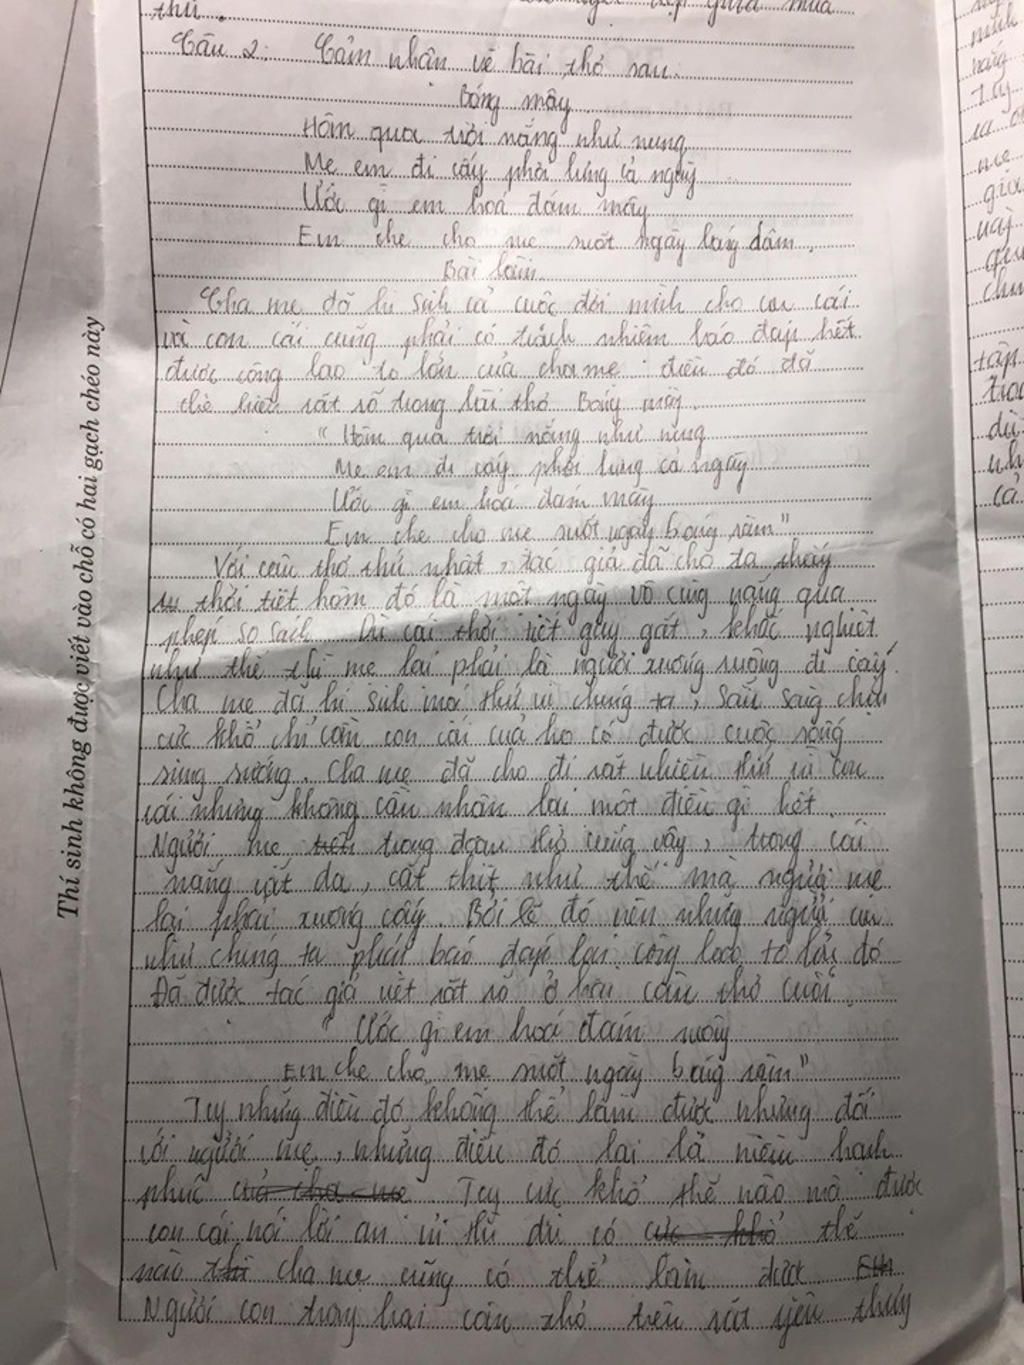 thu.
giữa mùa
Câu 2: Cảm nhận về bài thơ sau.
Bóng mây
Hôm qua trời nắng như nung
Mẹ em đi cấy phơi lưng cả ngày
Ước gì em hoá đám mây
Em che cho mẹ suốt ngày bóng dâm.
Bài làm
Cha mẹ đã hi sinh cả cuộc đời mình cho con cái
và con cái cũng phải có trách nhiệm báo đáp hết
được công lao to lớn của cha mẹ điều đó đã
thể hiện rất rõ trong bài thơ Bóng mây.
"Hôm qua trời nắng như nung
Mẹ em đi cấy phơi lưng cả ngày
Ước gì em hoá đám mây
Em che cho mẹ suốt ngày bóng râm"
Với câu thơ thứ nhất, tác giả đã cho ta thấy
sự thời tiết hôm đó là một ngày vô cùng nắng qua
phép so sánh. Dù cái thời tiết gay gắt, khắc nghiệt
như thế thì mẹ lại phải là người xuống ruộng đi cấy.
Cha mẹ đã hi sinh mọi thứ vì chúng ta, sẵn sàng chịu
cực khổ chỉ cần con cái của họ có được cuộc sống
sung sướng. Cha mẹ đã cho đi rất nhiều thứ vì con
cái nhưng không cần nhận lại một điều gì hết.
Người mẹ trong đoạn thơ cũng vậy, trong cái
nắng cắt da, cắt thịt như thế mà người mẹ
lại phải xuống cấy. Bởi lẽ đó nên những người con
như chúng ta phải báo đáp lại công lao to lớn đó
Đã được tác giả viết rất rõ ở hai câu thơ cuối.
"Ước gì em hoá đám mây
Em che cho mẹ suốt ngày bóng râm"
Tuy những điều đó không thể làm được nhưng đối
với người mẹ, những điều đó lại là niềm hạnh
phúc của cha mẹ. Tuy cực khổ thế nào mà được
con cái nói lời an ủi thì dù có cực khổ thế
nào thì cha mẹ cũng có thể làm được. Em
Người con trong hai câu thơ trên rất yêu thương
Thí sinh không được viết vào chỗ có hai gạch chéo này